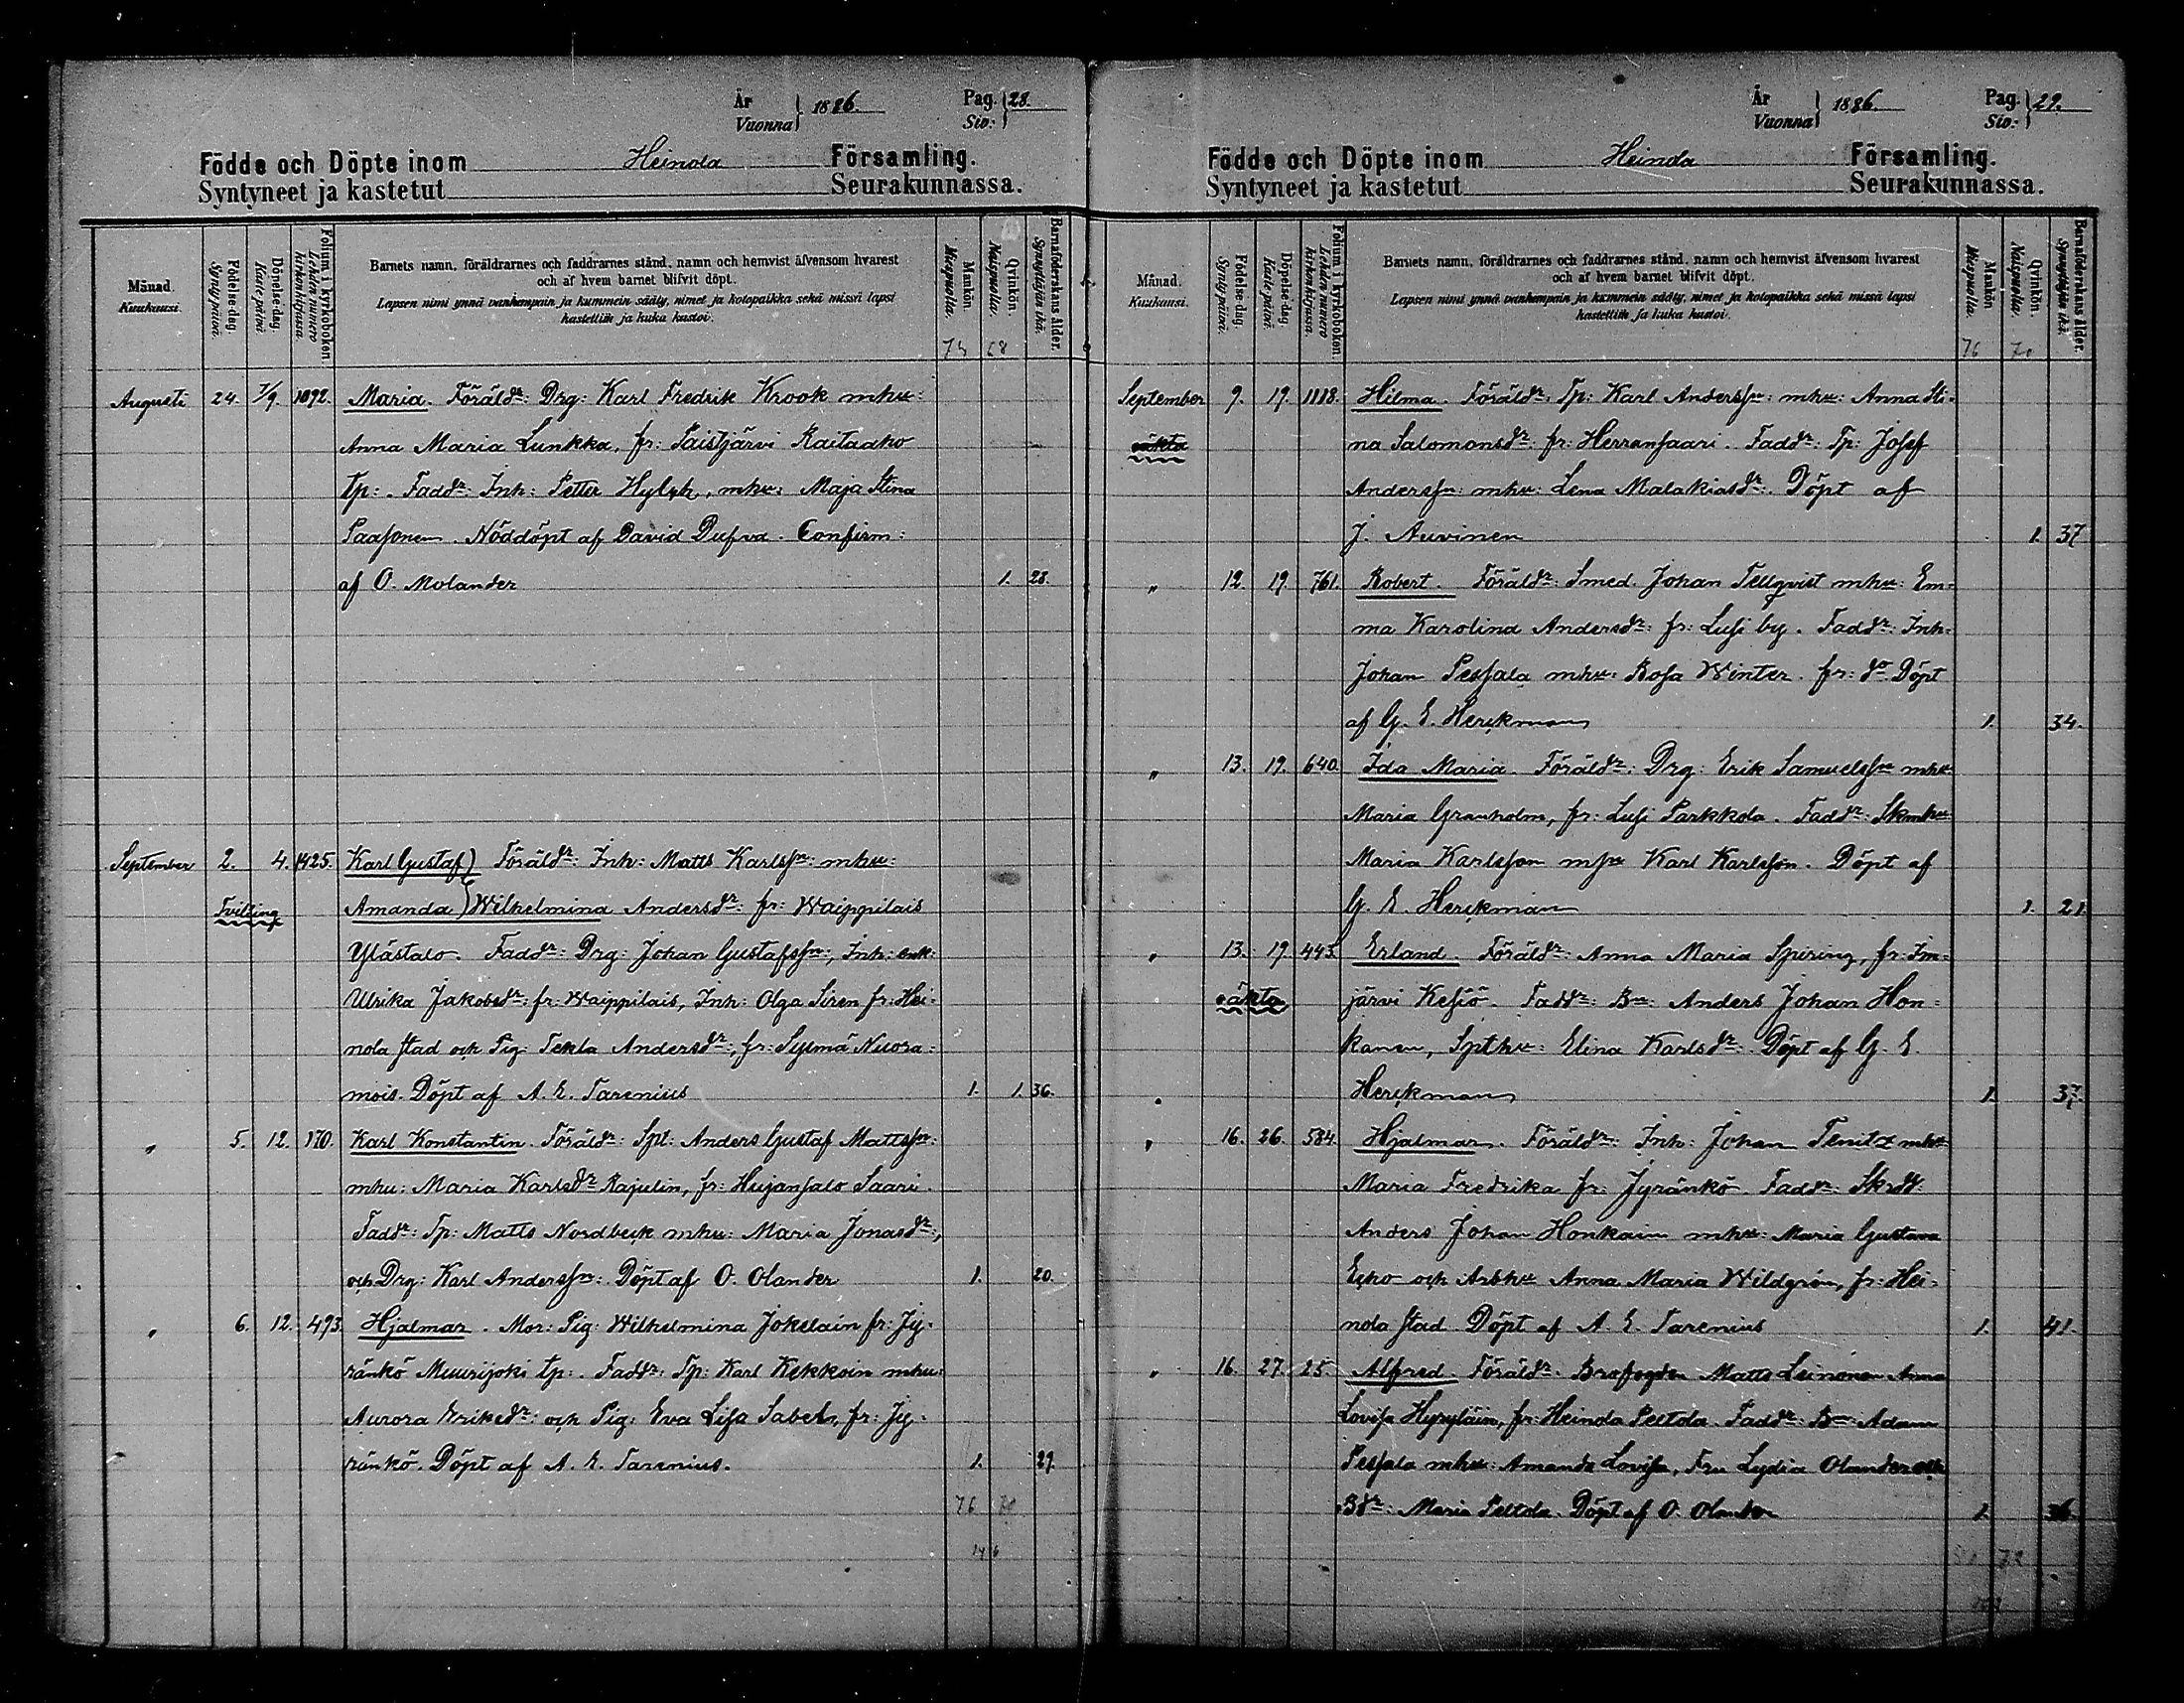 År
Vuonna } 1886.
Pag.
Siv: } 28.
Födde och Döpte inom Heinola Församling.
Syntyneet ja kastetut Seurakunnassa.
Månad.
Kuukausi.
Födelse-dag.
Syntypäivä.
Döpelse-dag.
Kaste-päivä.
Folium i kyrkoboken
Lehden numero kirkonkirjassa.
Barnets namn, föräldrarnes och faddrarnes stånd, namn och hemvist äfvensom hvarest
och af hvem barnet blifvit döpt.
Lapsen nimi ynnä vanhempain ja kummein sääty, nimet ja kotopaikka sekä missä lapsi
kastettiin ja kuka kastoi.
Mankön.
Miespuolia.
Qvinkön.
Naispuolia.
Barnaföderskans ålder.
Synnyttäjän ikä.
75 68
Augusti 24. 7/9. 1092. Maria. Föräldr: Drg: Karl Fredrik Krook mhu:
Anna Maria Lunkka, fr: Paistjärvi Raitaaho
tp:. Faddr: Inh: Petter Hylyh, mhu: Maja Stina
Paasonen. Nöddöpt af David Dufva. Confirm:
af O. Molander 1. 28.
September 2. 4. 1425. Karl Gustaf) Föräldr: Inh: Matts Karlssn: mhu:
Tvilling Amanda) Wilhelmina Andersdr: fr: Waippilais
Ylästalo. Faddr: Drg: Johan Gustafssn:, Inh: enk:
Ulrika Jakobsdr: fr: Waippilais, Inh: Olga Siren fr: Hei-
nola stad och Pig: Tekla Andersdr:, fr: Sysmä Nuora-
mois. Döpt af A. E. Tarenius 1. 1. 36.
" 5. 12. 170. Karl Konstantin. Föräldr: Spt: Anders Gustaf Mattssn:
mhu: Maria Karlsdr Rajulin, fr: Hujansalo Saari.
Faddr: Tp: Matts Nordbeck mhu: Maria Jonasdr:,
och Drg: Karl Anderssn:. Döpt af O. Olander 1. 20.
" 6. 12. 493. Hjalmar. Mor: Pig: Wilhelmina Jokelain fr: Jy-
ränkö Muurijoki tp:. Faddr: Tp: Karl Kekkoin mhu:
Aurora Eriksdr: och Pig: Eva Lisa Sabel, fr: Jy-
ränkö. Döpt af A. E. Tarenius. 1. 29.
76 70
146
År
Vuonna } 1886.
Pag.
Siv: } 29.
Födde och Döpte inom Heinola Församling.
Syntyneet ja kastetut Seurakunnassa.
Månad.
Kuukausi.
Födelse-dag.
Syntypäivä.
Döpelse-dag.
Kaste-päivä.
Folium i kyrkoboken
Lehden numero kirkonkirjassa.
Barnets namn, föräldrarnes och faddrarnes stånd, namn och hemvist äfvensom hvarest
och af hvem barnet blifvit döpt.
Lapsen nimi ynnä vanhempain ja kummein sääty, nimet ja kotopaikka sekä missä lapsi
kastettiin ja kuka kastoi.
Mankön.
Miespuolia.
Qvinkön.
Naispuolia.
Barnaföderskans ålder.
Synnyttäjän ikä.
76 70
September 9. 19. 1118. Hilma. Föräldr: Tp: Karl Anderssn: mhu: Anna Sti-
oäkta na Salomonsdr: fr: Herransaari. Faddr: Tp: Josef
Anderssn: mhu: Lena Malakiasdr. Döpt af
J. Auvinen 1. 37
" 12. 19. 761. Robert. Föräldr: Smed. Johan Tellqvist mhu: Em-
ma Karolina Andersdr: fr: Lusi by. Faddr: Inh:
Johan Pessala mhu: Rosa Winter. fr: do Döpt
af G. E. Herckman 1. 34.
" 13. 19. 640. Ida Maria. Föräldr: Drg: Erik Samuelssn mhu
Maria Granholm, fr: Lusi Parkkola. Faddr: Skmhu
Maria Karlsson msn Karl Karlsson. Döpt af
G. E. Herckman 1. 21.
" 13. 19. 443. Erland. Föräldr: Anna Maria Spiring, fr: Im-
oäkta järvi Kesiö. Faddr: Bn: Anders Johan Hon-
kanen, Spthu: Elina Karlsdr: Döpt af G. E.
Herckman 1. 37.
" 16. 26. 584. Hjalmar. Föräldr: Inh: Johan Tenitz mhu
Maria Fredrika fr: Jyränkö. Faddr: Skrdd:
Anders Johan Honkain mhu: Maria Gustava
Echo och Arbhu Anna Maria Wildgrén, fr: Hei-
nola stad Döpt af A. E. Tarenius 1. 41.
" 16. 27. 25. Alfred. Föräldr: Brofogden Matts Leinonen Anna
Lovisa Hyryläin, fr: Heinola Peltola. Faddr: Bn: Adam
Pessala mhu: Amanda Lovisa, Fru Lydia Olander och
Bdr: Maria Peltola. Döpt af O. Olander 1. 36.
72